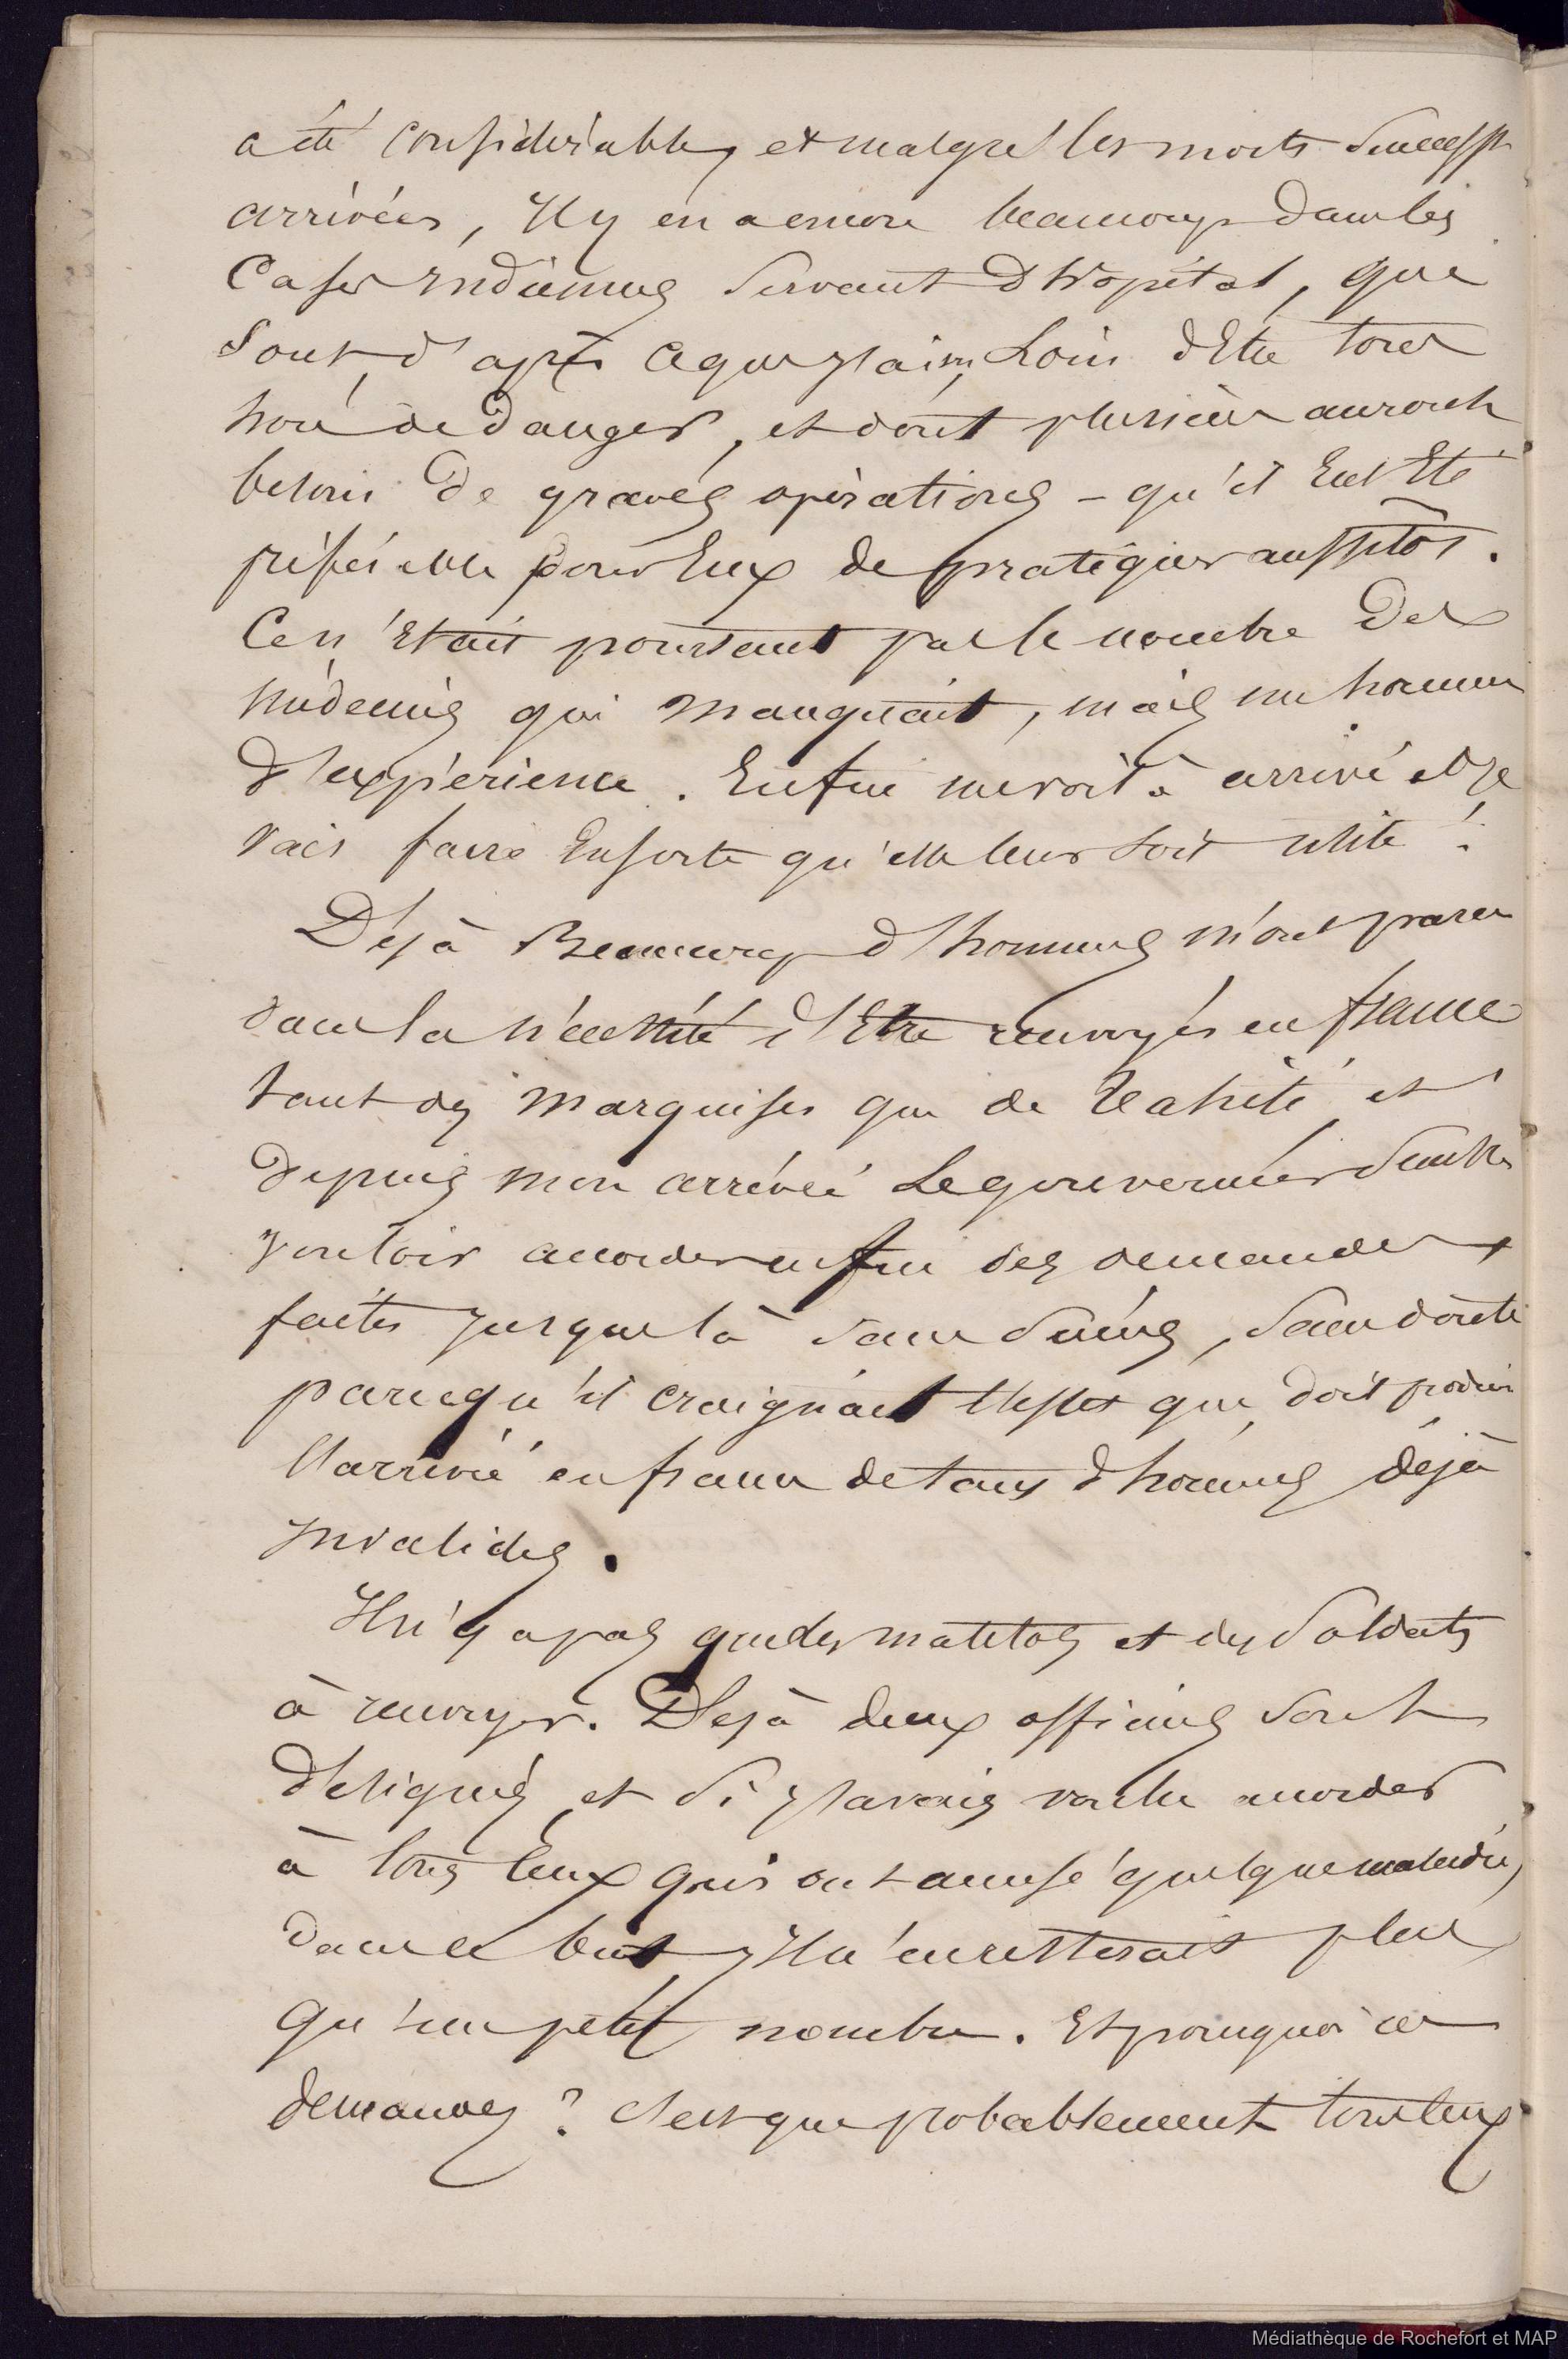 a été considérable, et malgré les morts success.
arrivées, Il y en a encore beaucoup dans les
Cases indiennes servant d'hopital, que
sont d'après ce que j'ai vu, Loin d'Etre tous
hors de danger, et dont plusieurs auront
besoin de graves opérations - qu'il Eut Eté
préférable pour Eux de pratiquer aussitôt.
Ce n'Etait pourtant pas le nombre des
médecins qui manquait, mais un homme
d'expérience. Enfin me voilà arrivé et Je
vais faire Ensorte qu'elle leur soit utile !
Déjà Beaucoup d'hommes m'ont paru
dans la nécessité d'Etre renvoyés en france
tant des marquises que de Tahiti, et
depuis mon arrivée Le gouverneur semble
vouloir accorder enfin des demandes
faites jusque là sans succès, sans doute
parcequ'il craignait l'effet que doit produire
l'arrivée en france de tant d'hommes déjà
invalides.
Il n'y a pas que des matelots et des Soldats
à renvoyer. Déjà deux officiers sont
désignés, et si j'avais voulu accorder
à tous Ceux qui ont accusé quelque maladie,
dans ce but, Il n'en resterait plus
qu'un petit nombre. Et pourquoi ces
demandes ? c'est que probablement tous ceux
Médiathèque de Rochefort et MAP